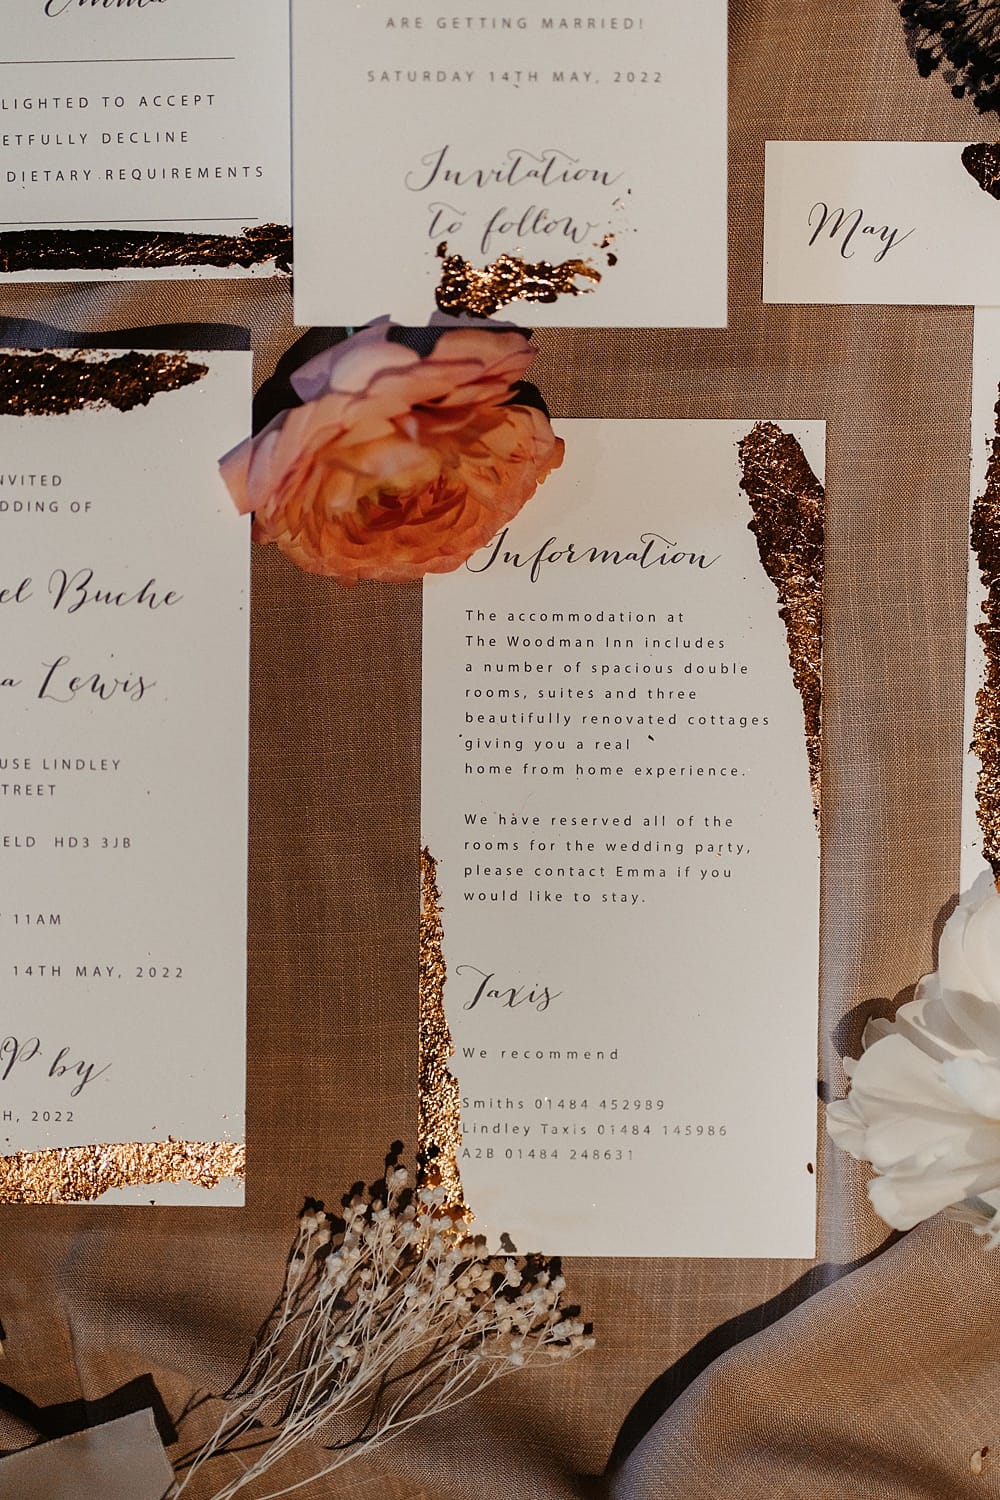 Emma
LIGHTED TO ACCEPT
ETFULLY DECLINE
DIETARY REQUIREMENTS
ARE GETTING MARRIED!
SATURDAY 14TH MAY, 2022
Invitation
to follow
May
NVITED
DDING OF
el Buche
a Lewis
USE LINDLEY
TREET
ELD HD3 3JB
11AM
14TH MAY, 2022
P by
H, 2022
Information
The accommodation at
The Woodman Inn includes
a number of spacious double
rooms, suites and three
beautifully renovated cottages
giving you a real
home from home experience.
We have reserved all of the
rooms for the wedding party,
please contact Emma if you
would like to stay.
Taxis
We recommend
Smiths 01484 452989
Lindley Taxis 01484 145986
A2B 01484 248631